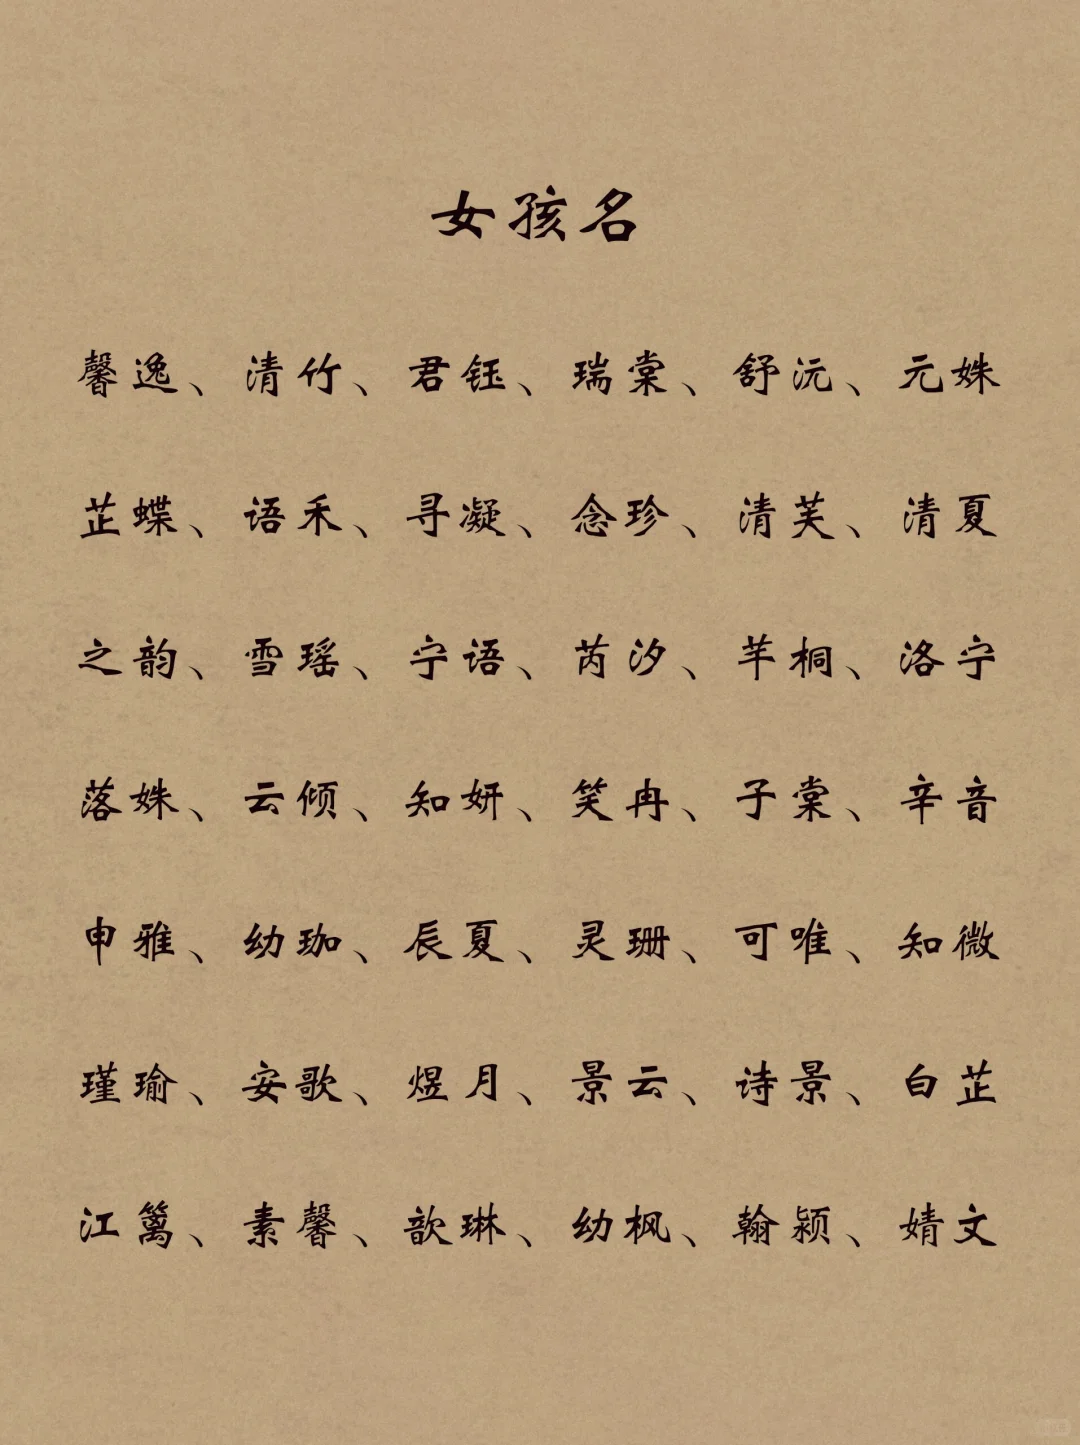 女孩名
馨逸、清竹、君钰、瑞棠、舒沅、元姝
芷蝶、语禾、寻凝、念珍、清芙、清夏
之韵、雪瑶、宁语、芮汐、芊桐、洛宁
落姝、云倾、知妍、笑冉、子棠、辛音
申雅、幼珈、辰夏、灵珊、可唯、知微
瑾瑜、安歌、煜月、景云、诗景、白芷
江篱、素馨、歆琳、幼枫、翰颖、婧文